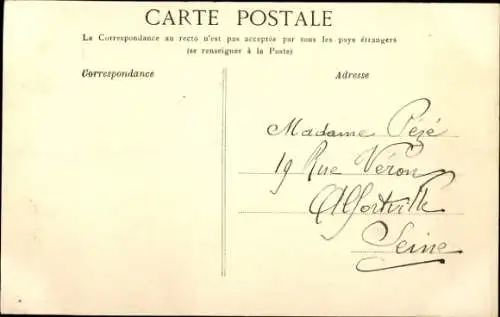 CARTE POSTALE
La Correspondance au recto n'est pas acceptée par tous les pays étrangers
(se renseigner à la Poste)
Correspondance
Adresse
Madame Pézé
19 Rue Véron
Alfortville
Seine